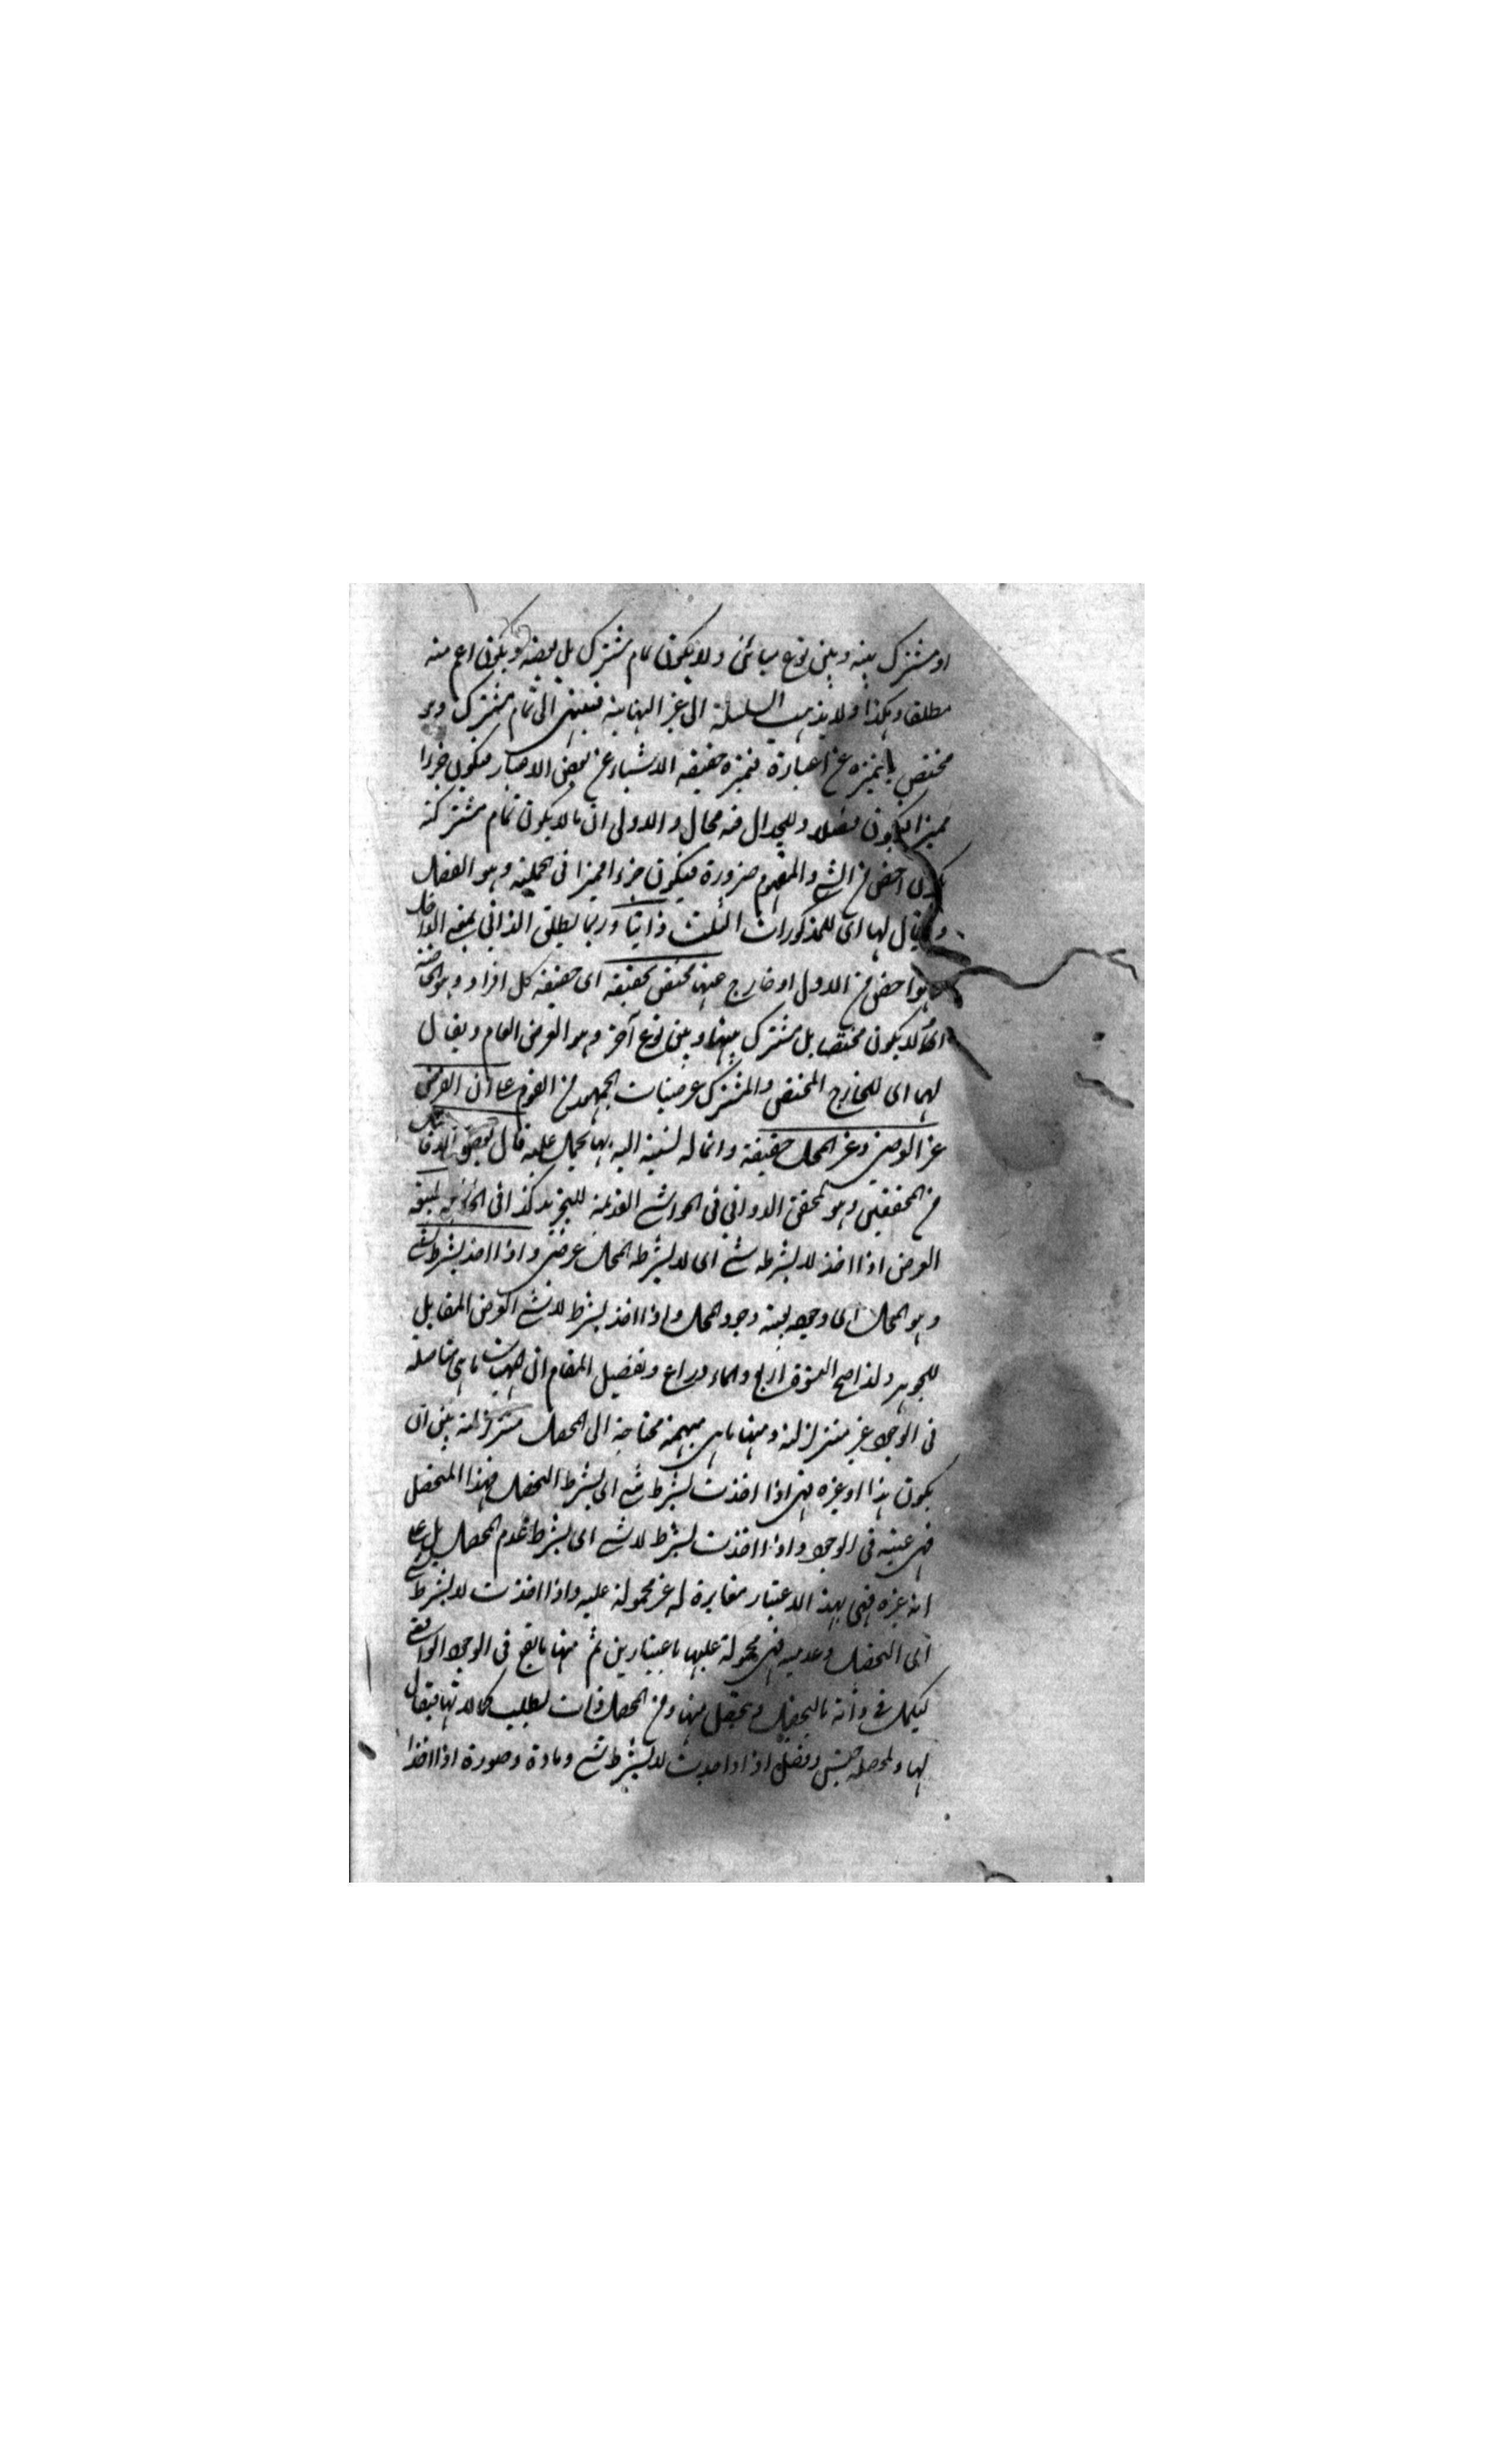 او مشترك بينه وبين نوع مبائن ولا يكون تمام مشترك بل بعضه ويكون اعم منه
مطلقا وهكذا ولا يذهب السلسلة الى غير النهاية فينتهي الى تمام مشترك وهو
مختص عن اغياره فتميزه حقيقة الاشياء عن بعض الاغيار فيكون جزءا
مميزا فيكون فصلا وللجدال فيه مجال والاولى ان ما لا يكون تمام مشتركة
يكون اخص من الشيء والمفهوم ضرورة فيكون جزءا مميزا في الجملة وهو الفصل
ويقال لها اى للمذكورات الثلث ذاتيا وربما يطلق الذاتي بمعنى الداخل
وهو اخص من الاول او خارج عنها مختص بحقيقة اى حقيقة كل افراد وهو الخاصة
لا يكون مختصا بل مشترك بينها وبين نوع آخر وهو العرض العام ويقال
لهما اى للخارج المختص والمشترك عرضيات الجمهور من القوم على ان العرض
غير العرضي وغير المحل حقيقة وانما له نسبة اليه بها يحمل عليه قال بعض الافاضل
من المحققين وهو المحقق الدواني في الحواشي القديمة للتجريد كذا في الحاشية طبيعة
العرض اذا اخذ لا بشرط شيء اى لا بشرط المحل عرضي واذا اخذ بشرط شيء
وهو المحل اى وجوده بعينه وجود المحل واذا اخذ بشرط لا شيء العرض المقابل
للجوهر ولذا صح النسوة اربع والماء ذراع وتفصيل المقام ان المهيات ما هي متاصلة
في الوجود غير متزلزلة ومنها ما هي مبهمة محتاجة الى المحصل متزلزلة بين ان
يكون هذا او غيره فهي اذا اخذت بشرط شيء اى بشرط التحصل فهذا المتحصل
فهي عينه في الوجود واذا اخذت بشرط لا شيء اى بشرط عدم المحصل بل على
انه غيره فهي بهذا الاعتبار مغايرة له غير محمولة عليه واذا اخذت لا بشرط شيء
اى التحصل وعدمه فهي محمولة عليها باعتبارين ثم منها ما يقع في الوجود الواقعي
ليكمل في ذاته بالتحصل ويحصل منها ومن المحصل ذات يطلب كمالاتها فيقال
لها ولمحصله جنس وفصل اذا اخذت لا بشرط شيء ومادة وصورة اذا اخذا